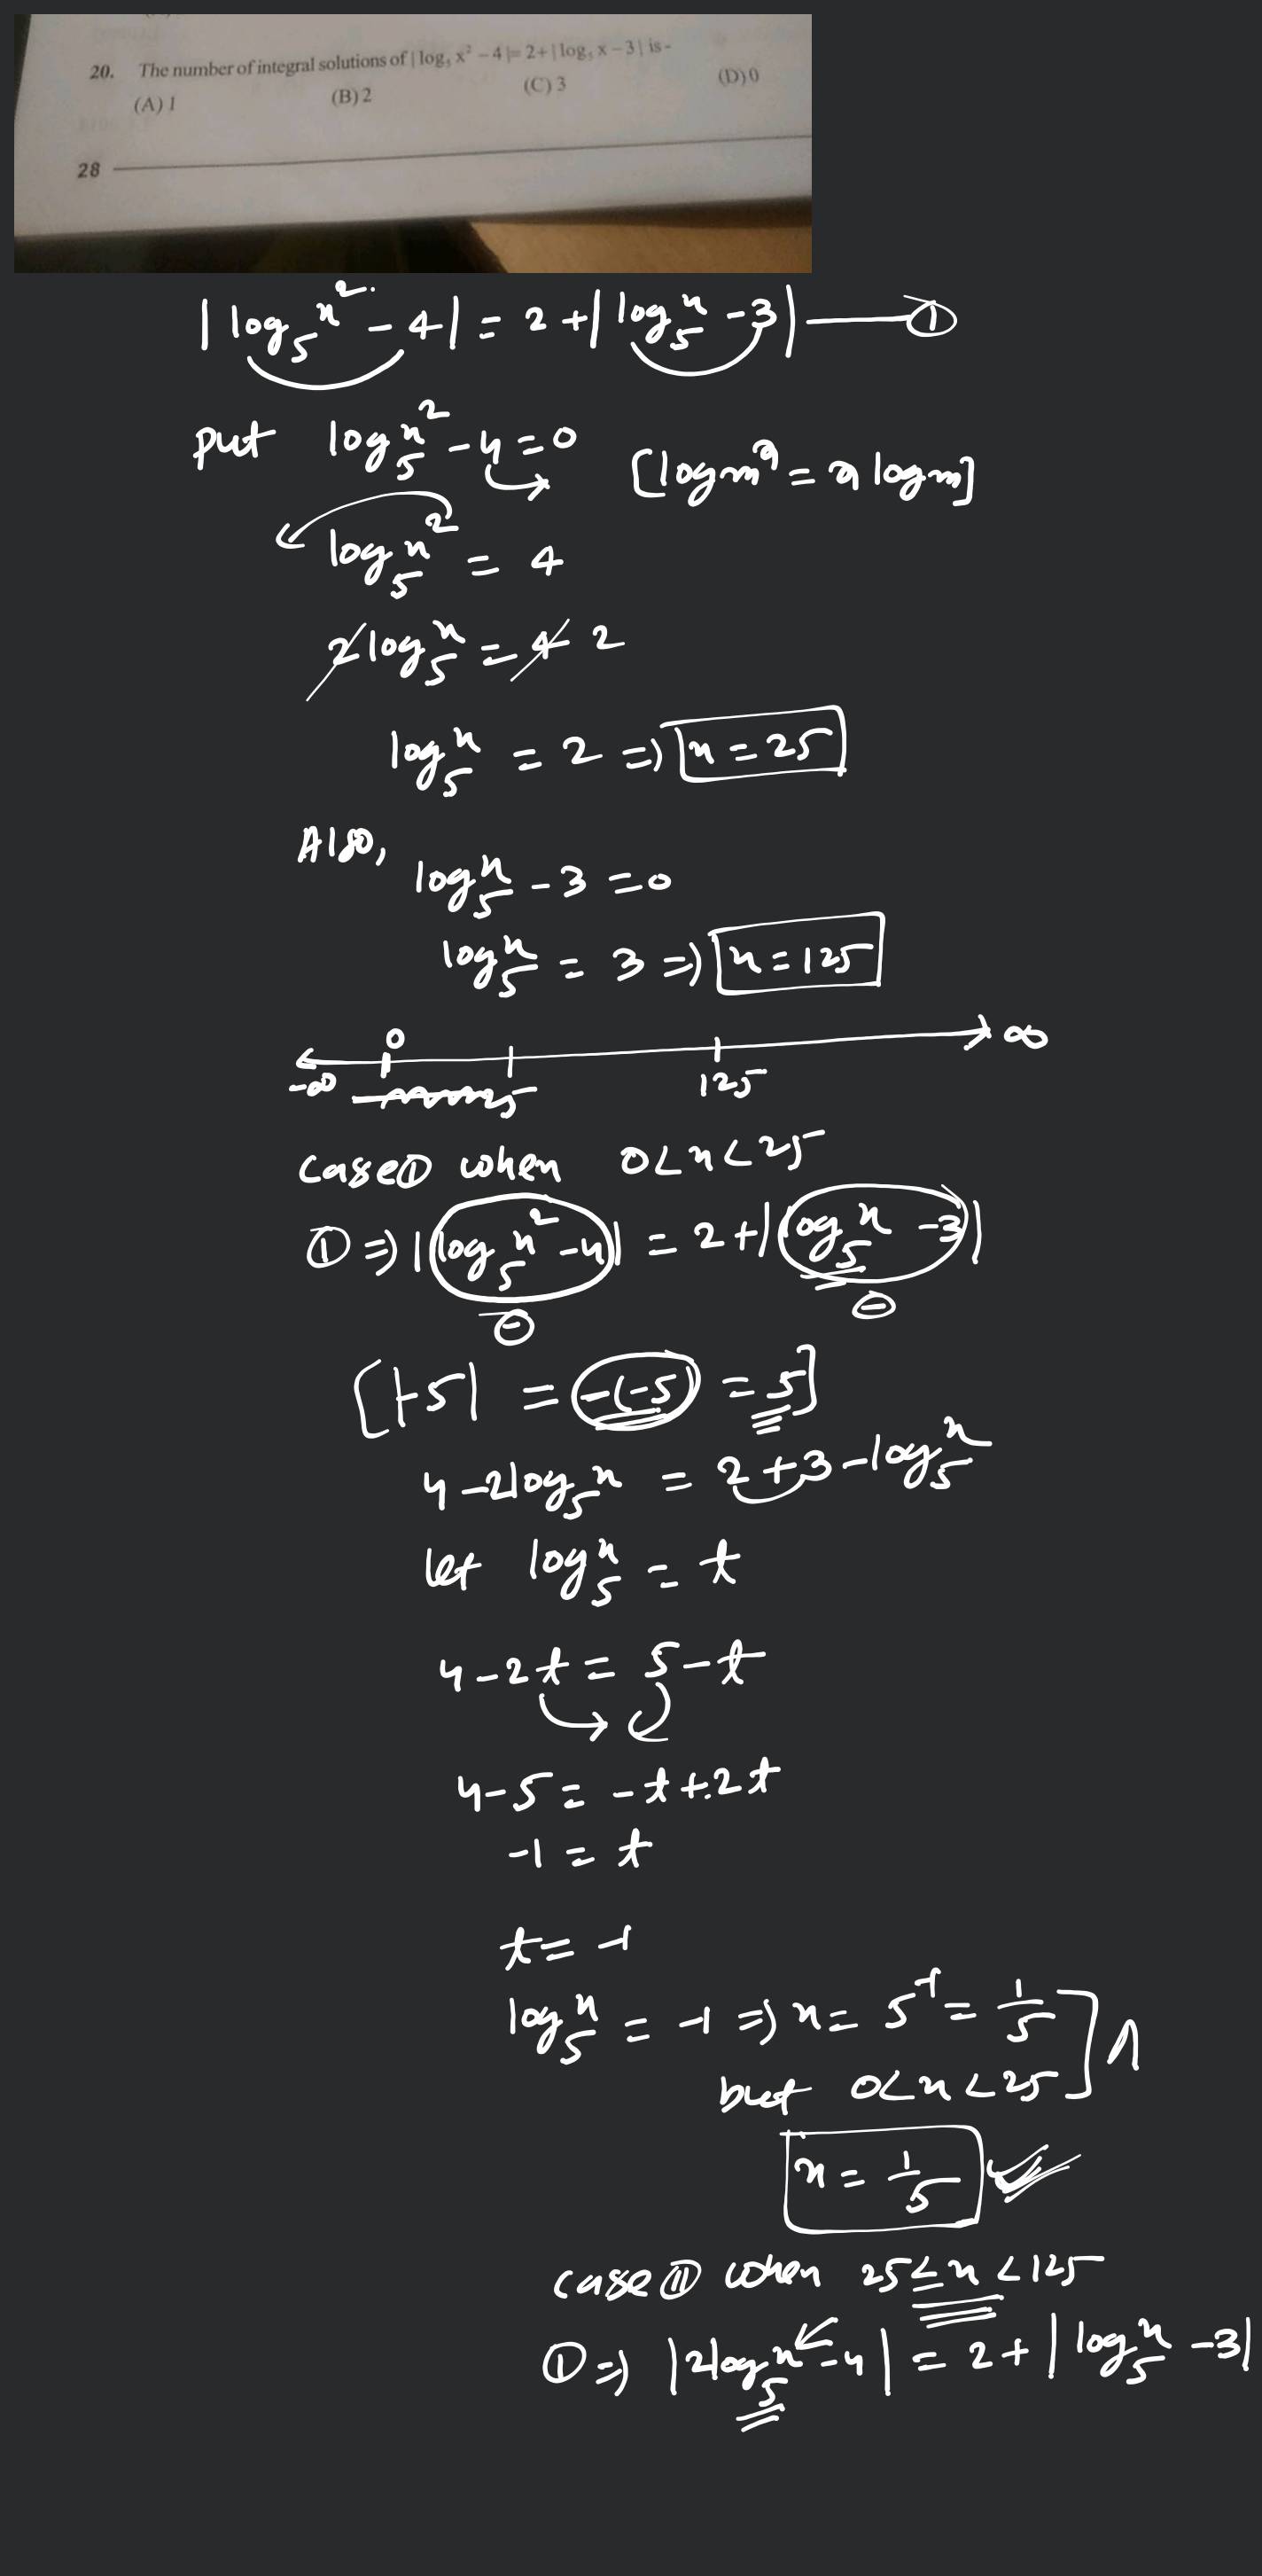 20. The number of integral solutions of | log₅ x² – 4 |= 2+ | log₅ x – 3 | is -
(A) 1 (B) 2 (C) 3 (D) 0
28
| log₅ x² - 4 | = 2 + | log₅ x - 3 | — ①
put log₅ x² - 4 = 0 [log mᵃ = a log m]
log₅ x² = 4
2 log₅ x = 4 2
log₅ x = 2 ⇒ x = 25
Also,
log₅ x - 3 = 0
log₅ x = 3 ⇒ x = 125
-∞ 0 25 125 ∞
case ① when 0 < x < 25
① ⇒ | log₅ x² - 4 | = 2 + | log₅ x - 3 |
⊖ ⊖
[|-5| = -(-5) = 5]
4 - 2 log₅ x = 2 + 3 - log₅ x
let log₅ x = t
4 - 2t = 5 - t
4 - 5 = -t + 2t
-1 = t
t = -1
log₅ x = -1 ⇒ x = 5⁻¹ = 1/5
but 0 < x < 25 ] ∧
x = 1/5 ✓
case ② when 25 ≤ x < 125
① ⇒ | 2 log₅ x - 4 | = 2 + | log₅ x - 3 |